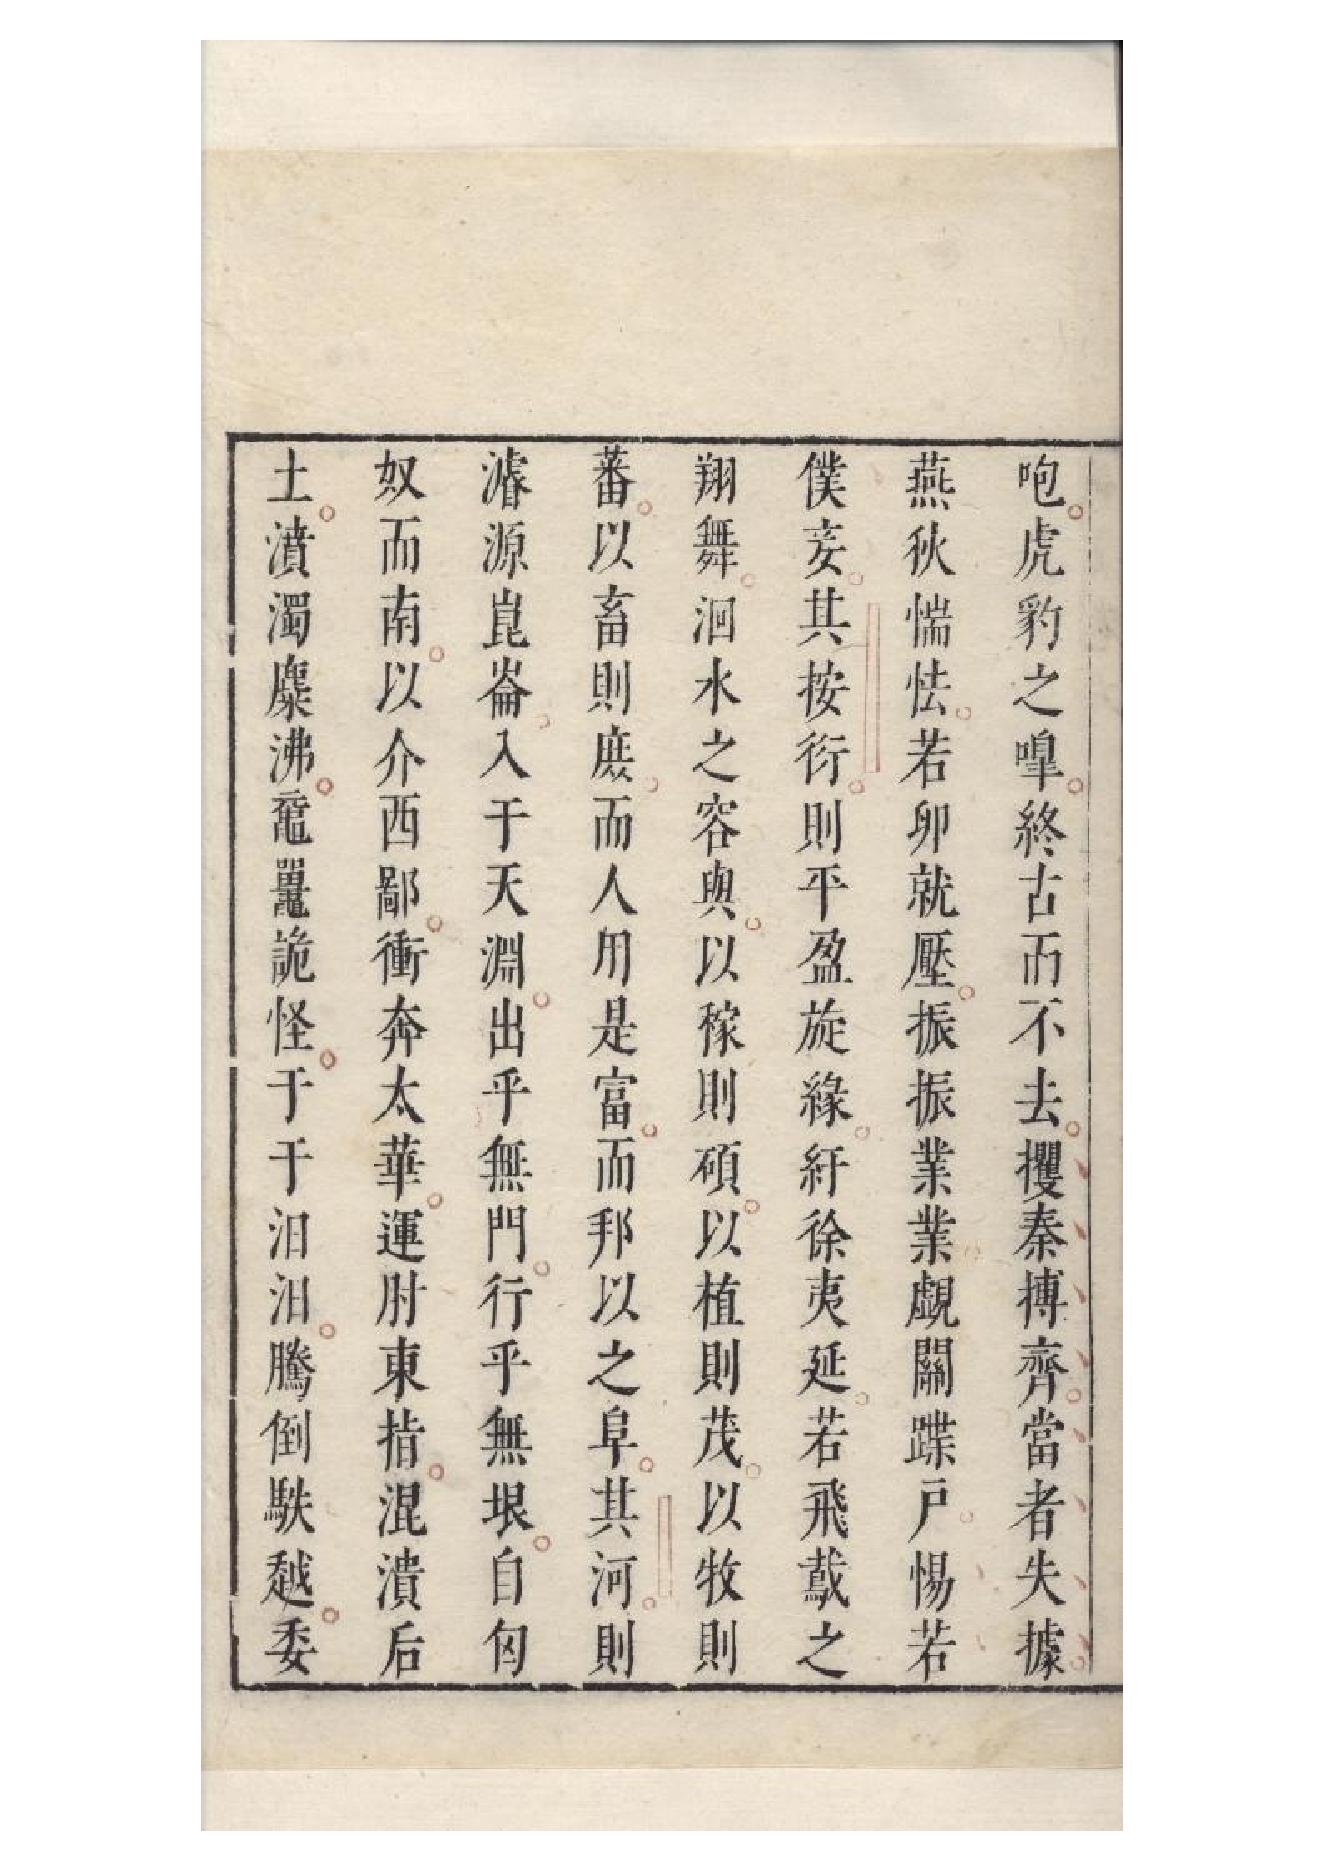 咆虎豹之嘷終古而不去攫秦搏齊當者失據
燕狄惴怯若卵就壓振振業業覷關蹀戶惕若
僕妾其按衍則平盈旋緣紆徐夷延若飛鳶之
翔舞洄水之容與以稼則碩以植則茂以牧則
蕃以畜則庶而人用是富而邦以之阜其河則
濬源崑崙入于天淵出乎無門行乎無垠自匈
奴而南以介西鄙衝奔太華運肘東指混潰后
土濆濁麋沸黿鼉詭怪于于汩汩騰倒駃越委